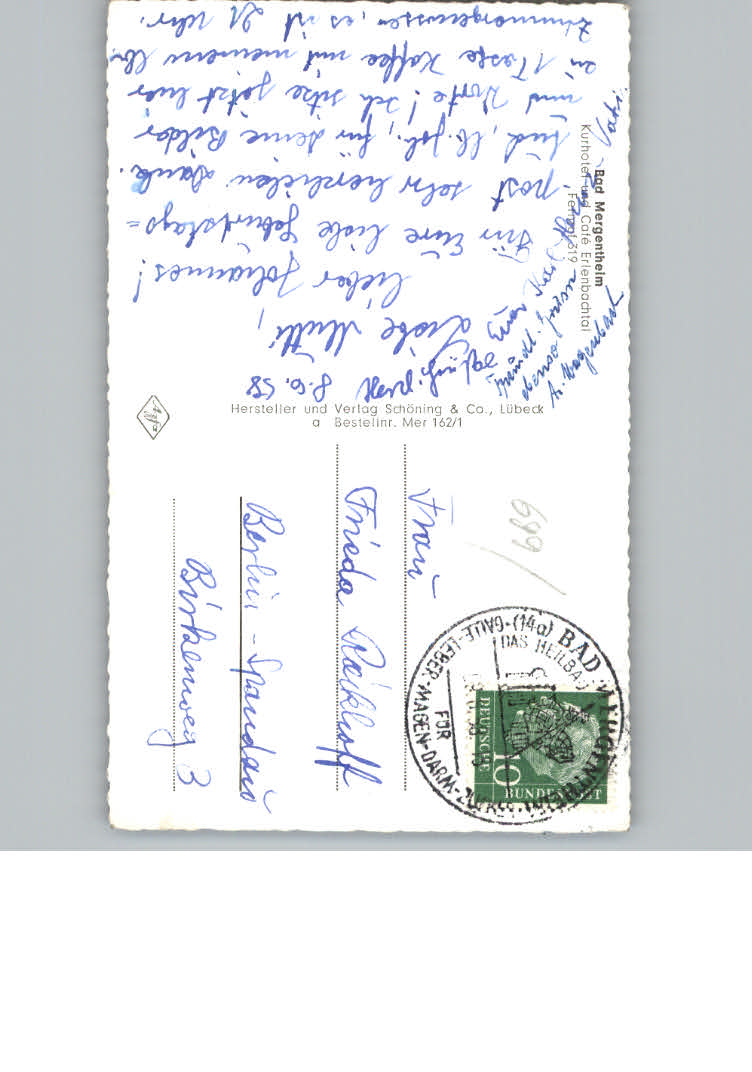 Bad Mergentheim
Kurhotel und Café Erlenbachtal
Fernruf 319
8.6.58
Liebe Mutti,
lieber Johannes!
Für Eure liebe Geburtstags=
post sehr herzlichen Dank.
Und, lb. Joh., für deine Bilder
und Worte! Ich sitze jetzt hier
zu 1 Tasse Kaffee mit meinem lb.
Zimmergenossen, es ist 21 Uhr.
Euer Karl
A. Wagenbach
Hersteller und Verlag Schöning & Co., Lübeck
a Bestellnr. Mer 162/1
Frau
Frieda
Berlin-Spandau
Birkenweg 3
689
(14a) BAD MERGENTHEIM
DAS HEILBAD
FÜR
GALLE-LEBER-MAGEN-DARM-ZUCKER
DEUTSCHE
BUNDESPOST
10